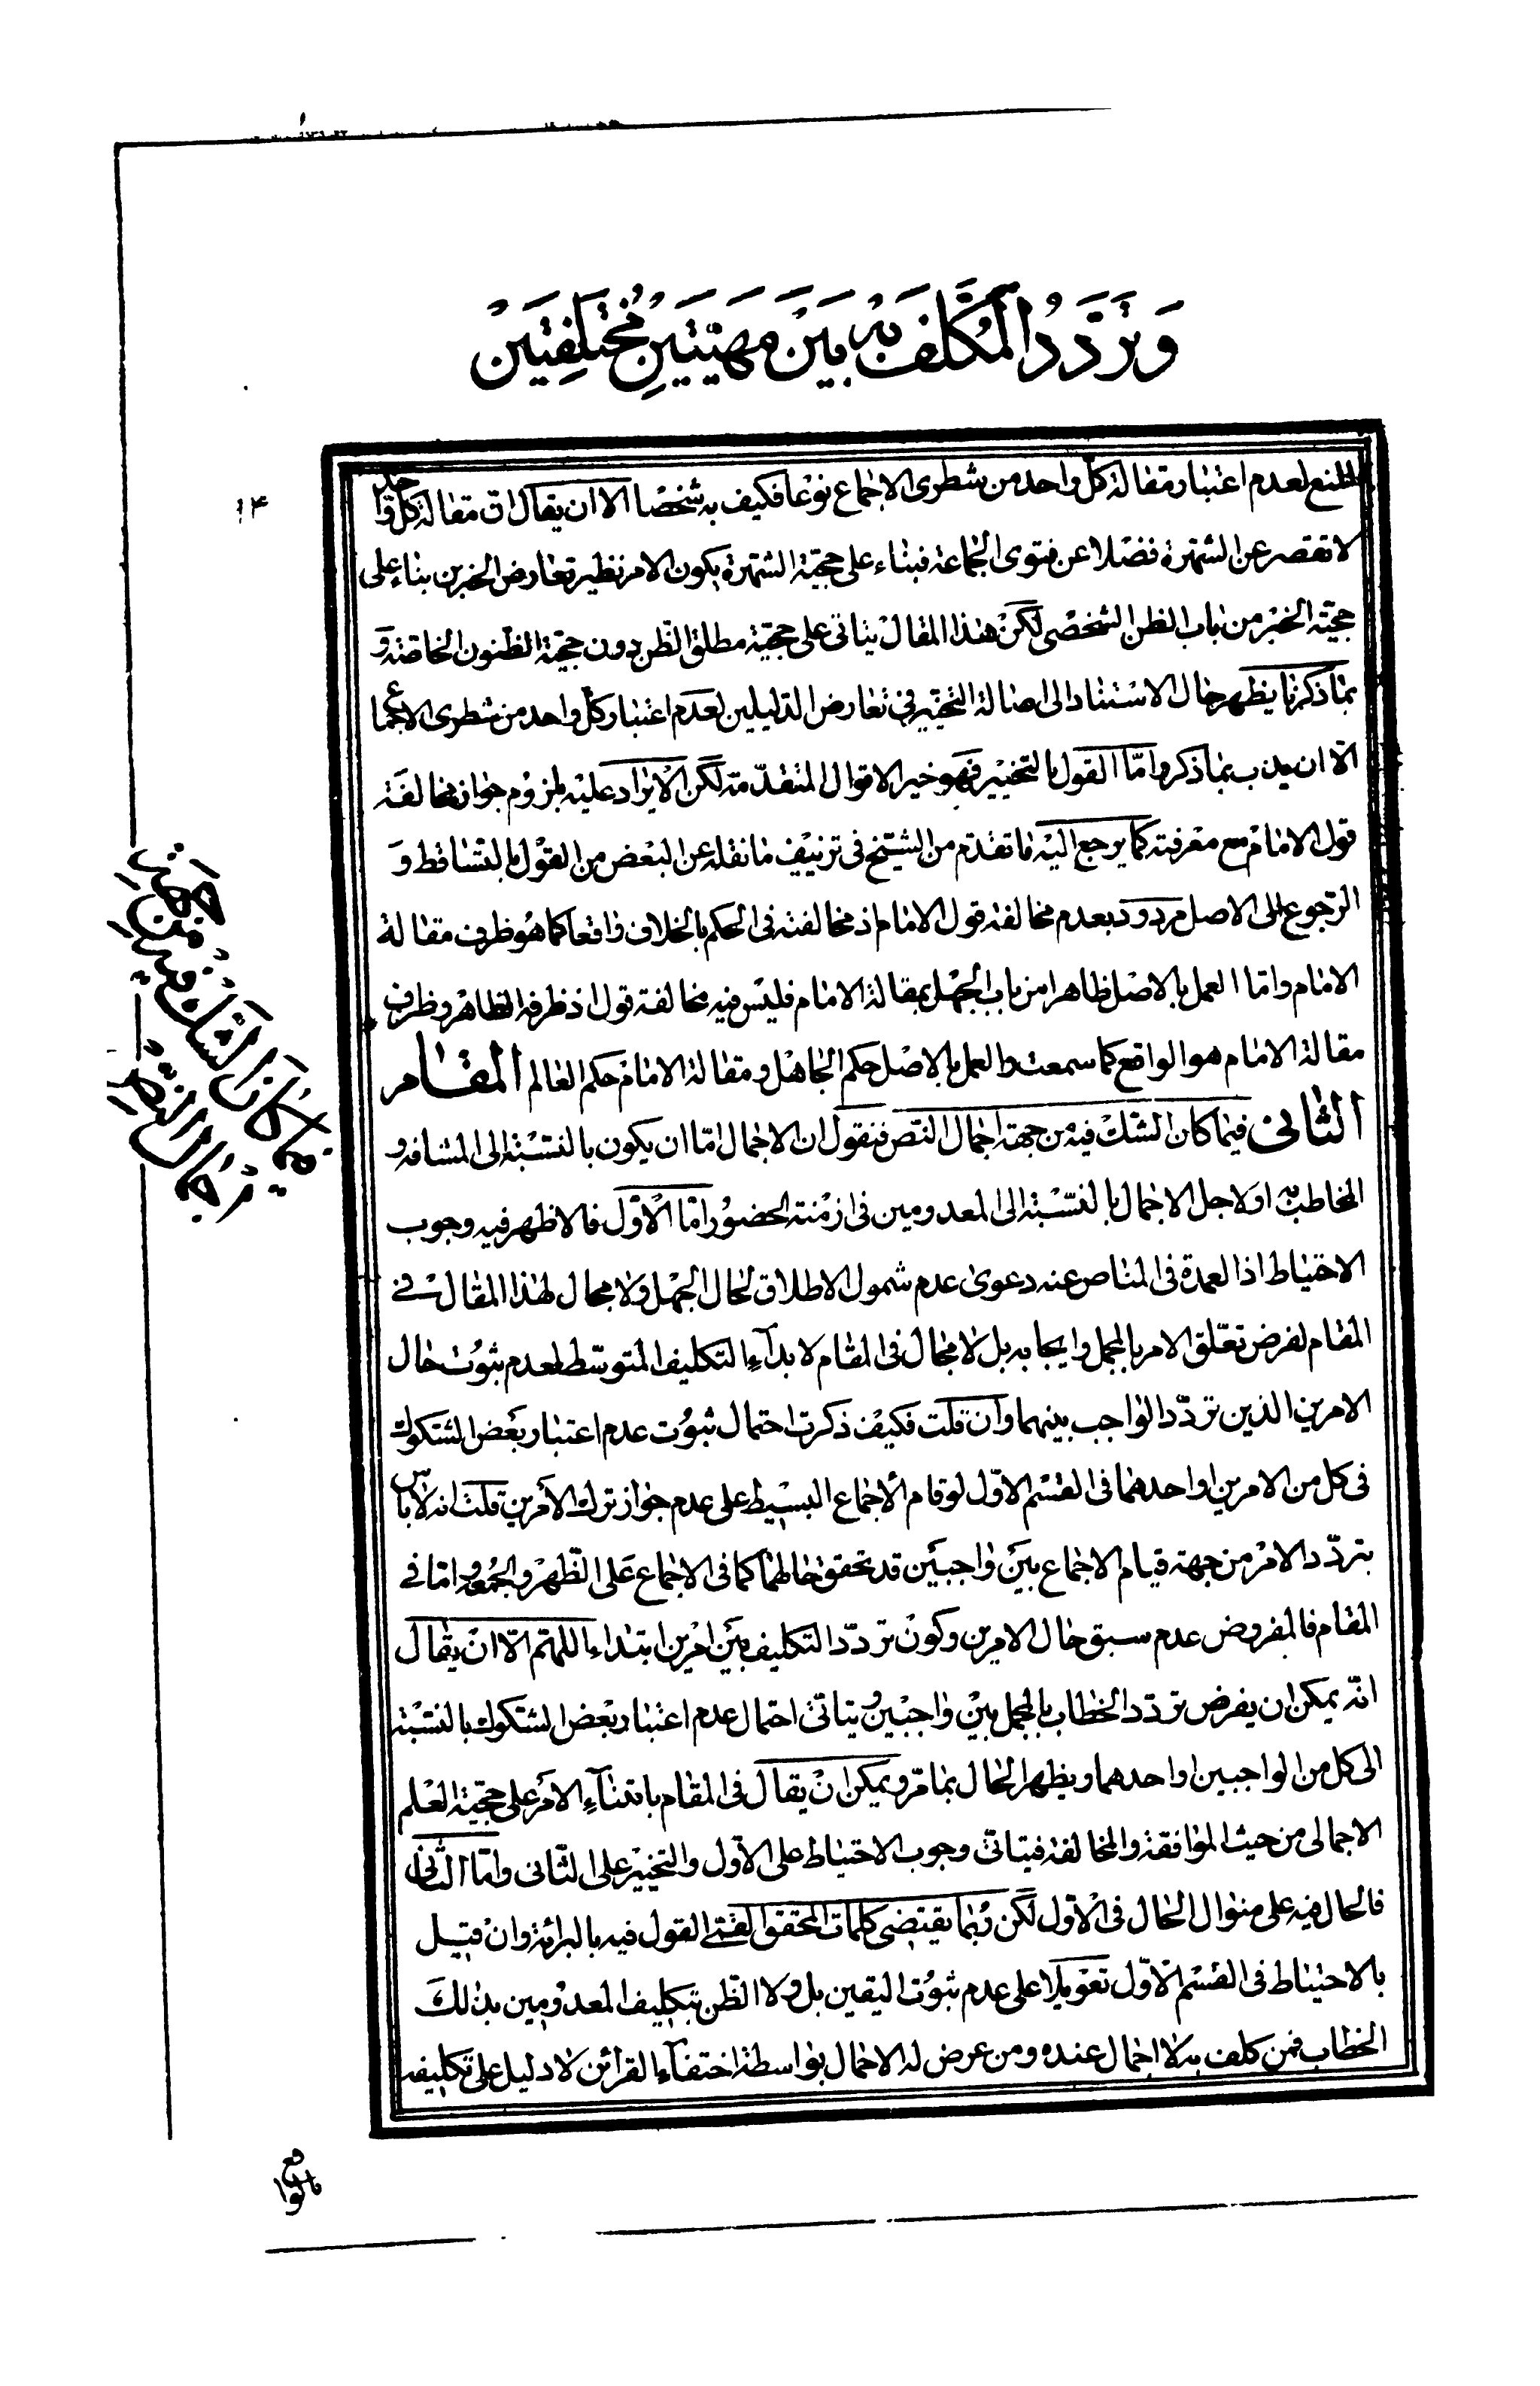 وَتَرَدُّدُ الْمُكَلَّفِ بِهِ بَيْنَ مَهِيَّتَيْنِ مُخْتَلِفَتَيْنِ
۱۴
المنع لعدم اعتبار مقالة كل واحد من شطرى الاجماع نوعا فكيف به شخصا الا ان يقال ان مقالة كل واحد
لا تقصر عن الشهرة فضلا عن فتوى الجماعة فبناء على حجيّة الشهرة يكون الامر نظير تعارض الخبرين بناء على
حجيّة الخبر من باب الظن الشخصى لكن هذا المقال يتاتى على حجيّة مطلق الظن دون حجيّة الظنون الخاصّة و
بما ذكرنا يظهر حال الاستناد الى اصالة التخيير فى تعارض الدليلين لعدم اعتبار كل واحد من شطرى الاجماع
الّا ان يذب بما ذكر وامّا القول بالتخيير فهو خير الاقوال المتقدّمة لكن الايراد عليه بلزوم جواز مخالفة
قول الامام مع معرفته كما يرجع اليه ما تقدم من الشيخ فى تزييف ما نقله عن البعض من القول بالتساقط و
الرّجوع الى الاصل مردود بعدم مخالفة قول الامام اذ مخالفته فى الحكم بالخلاف واقعا كما هو ظرف مقالة
الامام واما العمل بالاصل ظاهرا من باب الجهل بمقالة الامام فليس فيه مخالفة قول اذ ظرفه الظاهر وظرف
مقالة الامام هو الواقع كما سمعت والعمل بالاصل حكم الجاهل ومقالة الامام حكم العالم المقام
الثانى فيما كان الشك فيه من جهة اجمال النصّ فنقول ان الاجمال امّا ان يكون بالنسبة الى المشافه و
المخاطب به او لاجل الاجمال بالنسبة الى المعدومين فى ازمنة الحضور امّا الاوّل فالاظهر فيه وجوب
الاحتياط اذ العمدة فى المناص عنه دعوى عدم شمول الاطلاق لحال الجهل ولا مجال لهذا المقال فى
المقام لفرض تعلّق الامر بالمجمل وايجابه بل لا مجال فى المقام لابداء التكليف المتوسّط لعدم ثبوت حال
الامرين الذين تردّد الواجب بينهما وان قلت فكيف ذكرت احتمال ثبوت عدم اعتبار بعض الشكوك
فى كل من الامرين او احدهما فى القسم الاوّل لو قام الاجماع البسيط على عدم جواز ترك الأمرين قلت انه لا باس
بتردّد الامر من جهة قيام الاجماع بين واجبين قد تحقق حالهما كما فى الاجماع على الظهر والجمعة وامّا فى
المقام فالمفروض عدم سبق حال الامرين وكون تردّد التكليف بين امرين ابتداء اللهمّ الّا ان يقال
انّه يمكن ان يفرض تردّد الخطاب بالمجمل بين واجبين ويتاتّى احتمال عدم اعتبار بعض الشكوك بالنسبة
الى كل من الواجبين او احدهما ويظهر الحال بما مرّ ويمكن ان يقال فى المقام بابتناء الأمر على حجيّة العلم
الاجمالى من حيث الموافقة والمخالفة فيتاتّى وجوب الاحتياط على الاوّل والتخيير على الثانى وامّا الثانى
فالحال فيه على منوال الحال فى الاوّل لكن ربما يقتضى كلمات المحقق القمّى القول فيه بالبرائة وان قيل
بالاحتياط فى القسم الاوّل تعويلا على عدم ثبوت اليقين بل ولا الظن بتكليف المعدومين بذلك
الخطاب فمن كلف به لا اجمال عنده ومن عرض له الاجمال بواسطة اختفاء القرائن لا دليل على تكليفه
فيما كان الشك فيه من جهة
اجمال النصّ
بالواقع